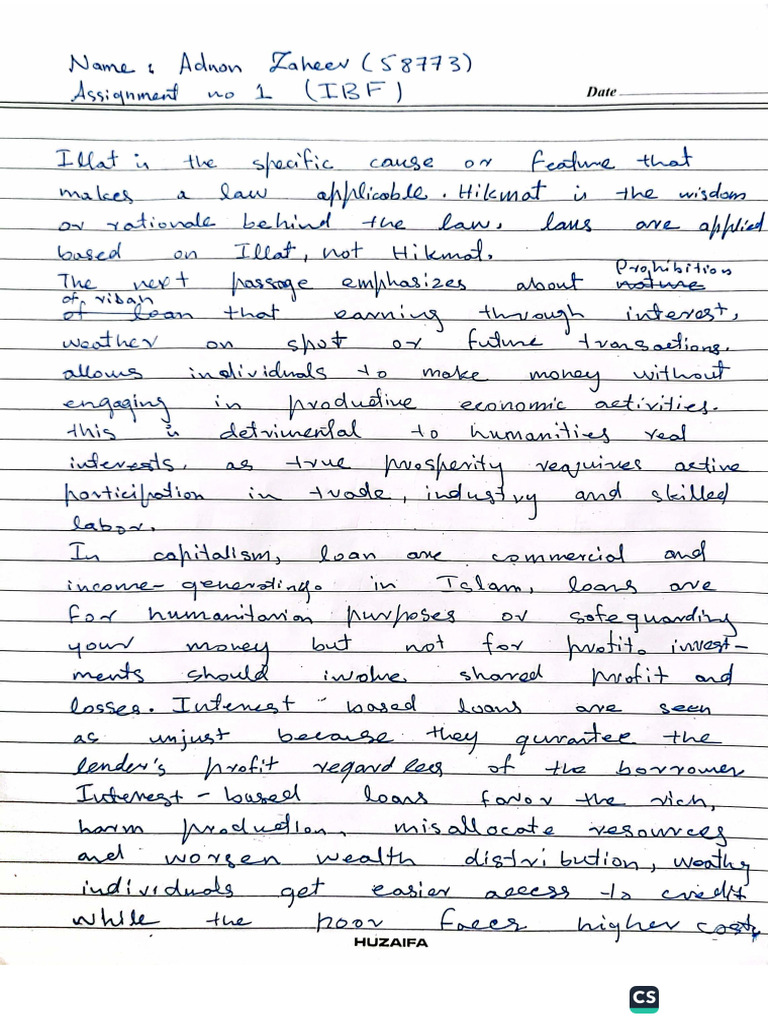 Name : Adnan Zaheer (58773)
Assignment no 1 (IBF)
Date
Illat is the specific cause or feature that
makes a law applicable. Hikmat is the wisdom
or rationale behind the law, laws are applied
based on Illat, not Hikmat.
The next passage emphasizes about Prohibition nature
of ribah
of loan that earning through interest,
weather on spot or future transactions.
allows individuals to make money without
engaging in productive economic activities.
this is detrimental to humanities real
interests, as true prosperity requires active
participation in trade, industry and skilled
labor.
In capitalism, loan are commercial and
income-generating. in Islam, loans are
for humanitarian purposes or safeguarding
your money but not for profit. invest-
ments should involve shared profit and
losses. Interest-based loans are seen
as unjust because they gurantee the
lender's profit regardless of the borrower
Interest-based loans favor the rich,
harm production, misallocate resources
and worsen wealth distribution, weathy
individuals get easier access to credit
while the poor faces higher costs
HUZAIFA
CS